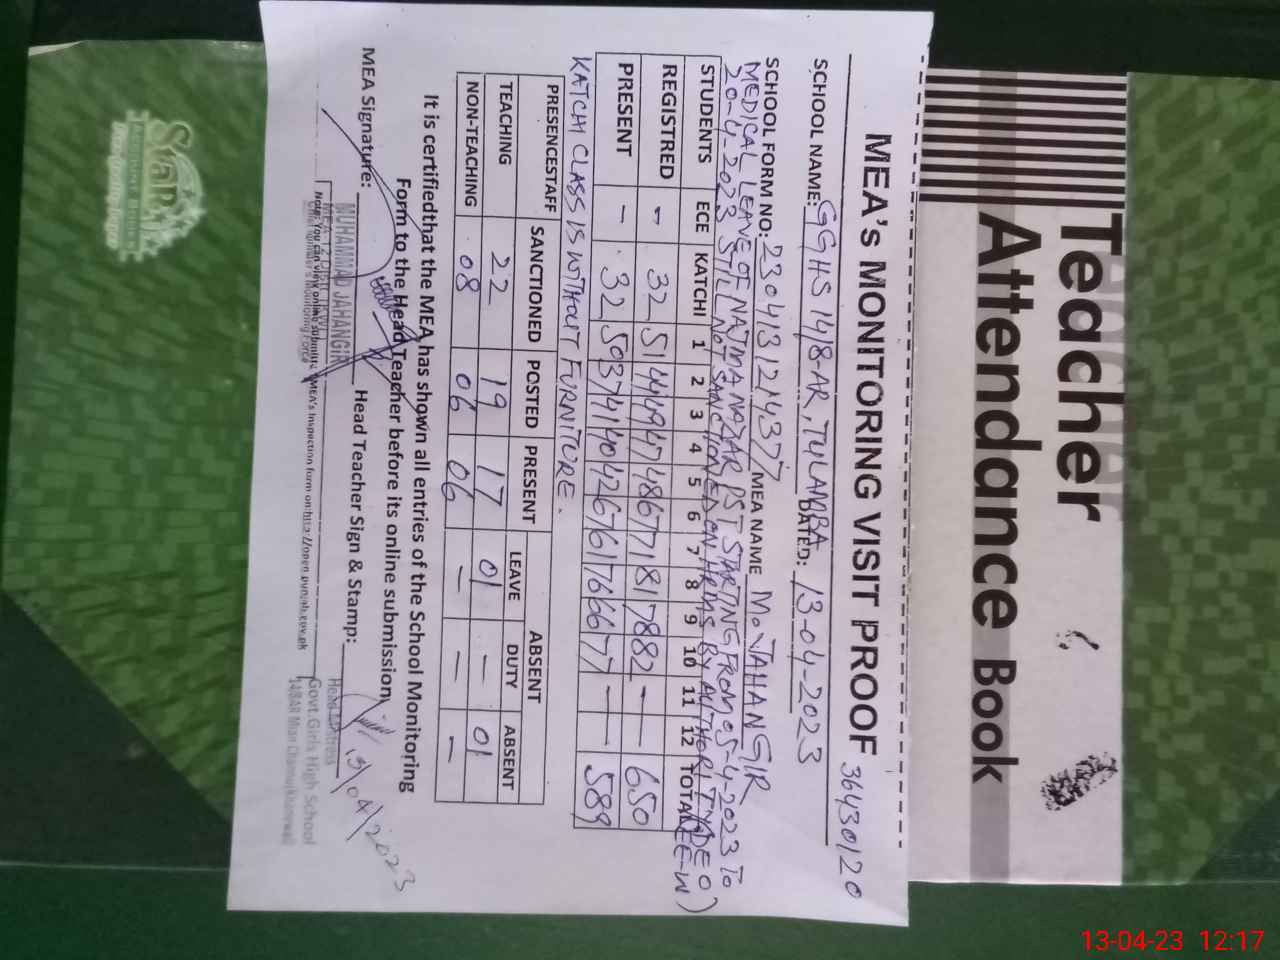 Teacher
Attendance Book
MEA's MONITORING VISIT PROOF 36430120
SCHOOL NAME: GGHS 14/8-AR, TULAMBA DATED: 13-04-2023
SCHOOL FORM NO: 2304131214377 MEA NAME M. JAHANGIR
MEDICAL LEAVE OF NAJMA NAZAR PST STARTING FROM 05-4-2023 TO
20-4-2023 STILL NOT SANCTIONED ON HRMS BY AUTHORITY (DEO EE-W)
STUDENTS ECE KATCHI 1 2 3 4 5 6 7 8 9 10 11 12 TOTAL
REGISTRED - 32 51 44 49 47 48 67 71 81 78 82 - - 650
PRESENT - 32 50 37 41 40 42 67 61 76 66 77 - - 589
KATCHI CLASS IS WITHOUT FURNITURE.
PRESENCESTAFF SANCTIONED POSTED PRESENT ABSENT
LEAVE DUTY ABSENT
TEACHING 22 19 17 01 - 01
NON-TEACHING 08 06 06 - - -
It is certifiedthat the MEA has shown all entries of the School Monitoring
Form to the Head Teacher before its online submission
MEA Signature: Head Teacher Sign & Stamp: 13/04/2023
MUHAMMAD JAHANGIR
Head Mistress
Govt. Girls High School
Note: You can view online submitted MEA's Inspection form on:http://open.punjab.gov.pk
Star
13-04-23 12:17